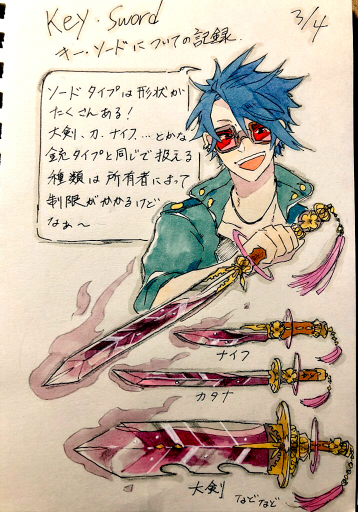 Key・Sword
3/4
キー・ソードについての記録.
ソードタイプは形状が
たくさんある!
大剣、刀、ナイフ…とかな
銃タイプと同じで扱える
種類は所有者によって
制限がかかるけど
なぁ〜
ナイフ
カタナ
大剣
などなど